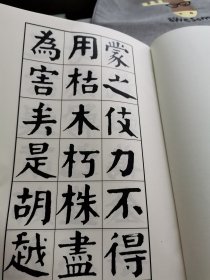 蒙之伎力不得
用枯木朽株盡
為害矣是胡越